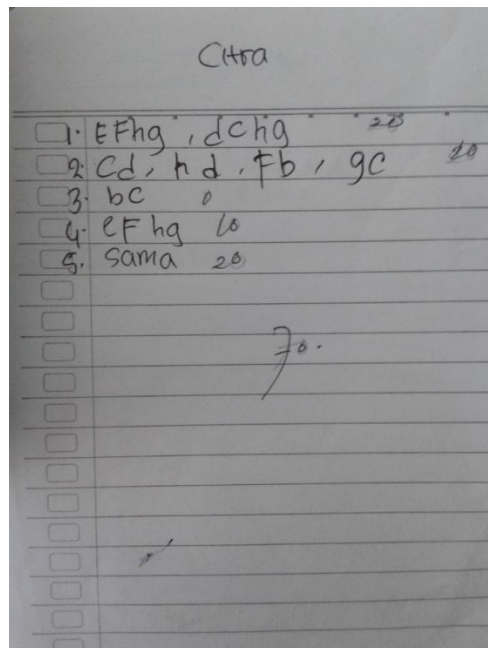 Citra
1. EFhg, dchg 20
2. Cd, hd, Fb, gc 20
3. bc 0
4. eF hg 10
5. sama 20
70.